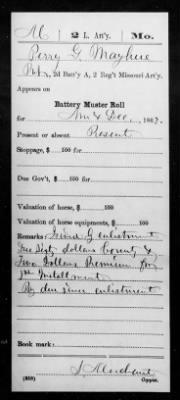 M | 2 L. Art'y. | Mo.
Perry G. Mayhue
Pvt., 2d Batt'y A, 2 Reg't Missouri Art'y.
Appears on
Battery Muster Roll
for Nov & Dec, 1863.
Present or absent Present
Stoppage, $ 100 for
Due Gov't, $ 100 for
Valuation of horse, $ 100
Valuation of horse equipments, $ 100
Remarks: enlistment
Sixty dollars Bounty &
Two Dollars Premium for
1st Installment
Pd due since enlistment
Book mark:
(859) Copyist.